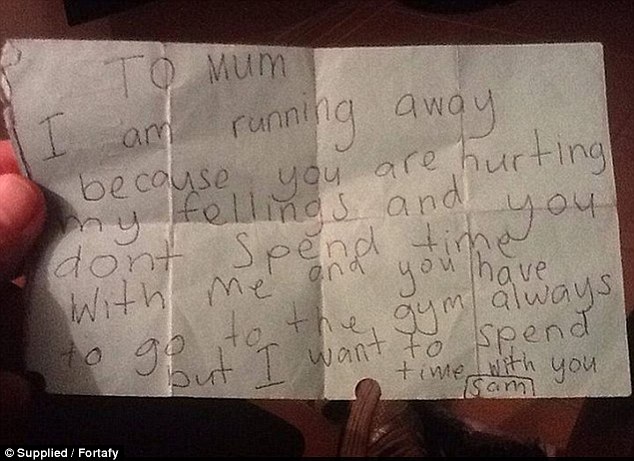 TO MUM
I am running away
because you are hurting
my fellings and you
dont spend time
with me and you have
to go to the gym always
but I want to spend
time with you
Sam
© Supplied / Fortafy